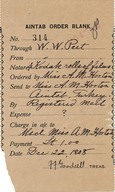 AINTAB ORDER BLANK
No. 314
Through W. W. Peet
From
Nature Kodak roll of films
Ordered by Miss A. M. Horton
Send to Miss A. M. Horton
Aintab, Turkey.
By Registered mail
Expense
Charge to
Acct. Miss A. M. Horton
Payment $1.00
Date Dec 22, 1908
TREAS.